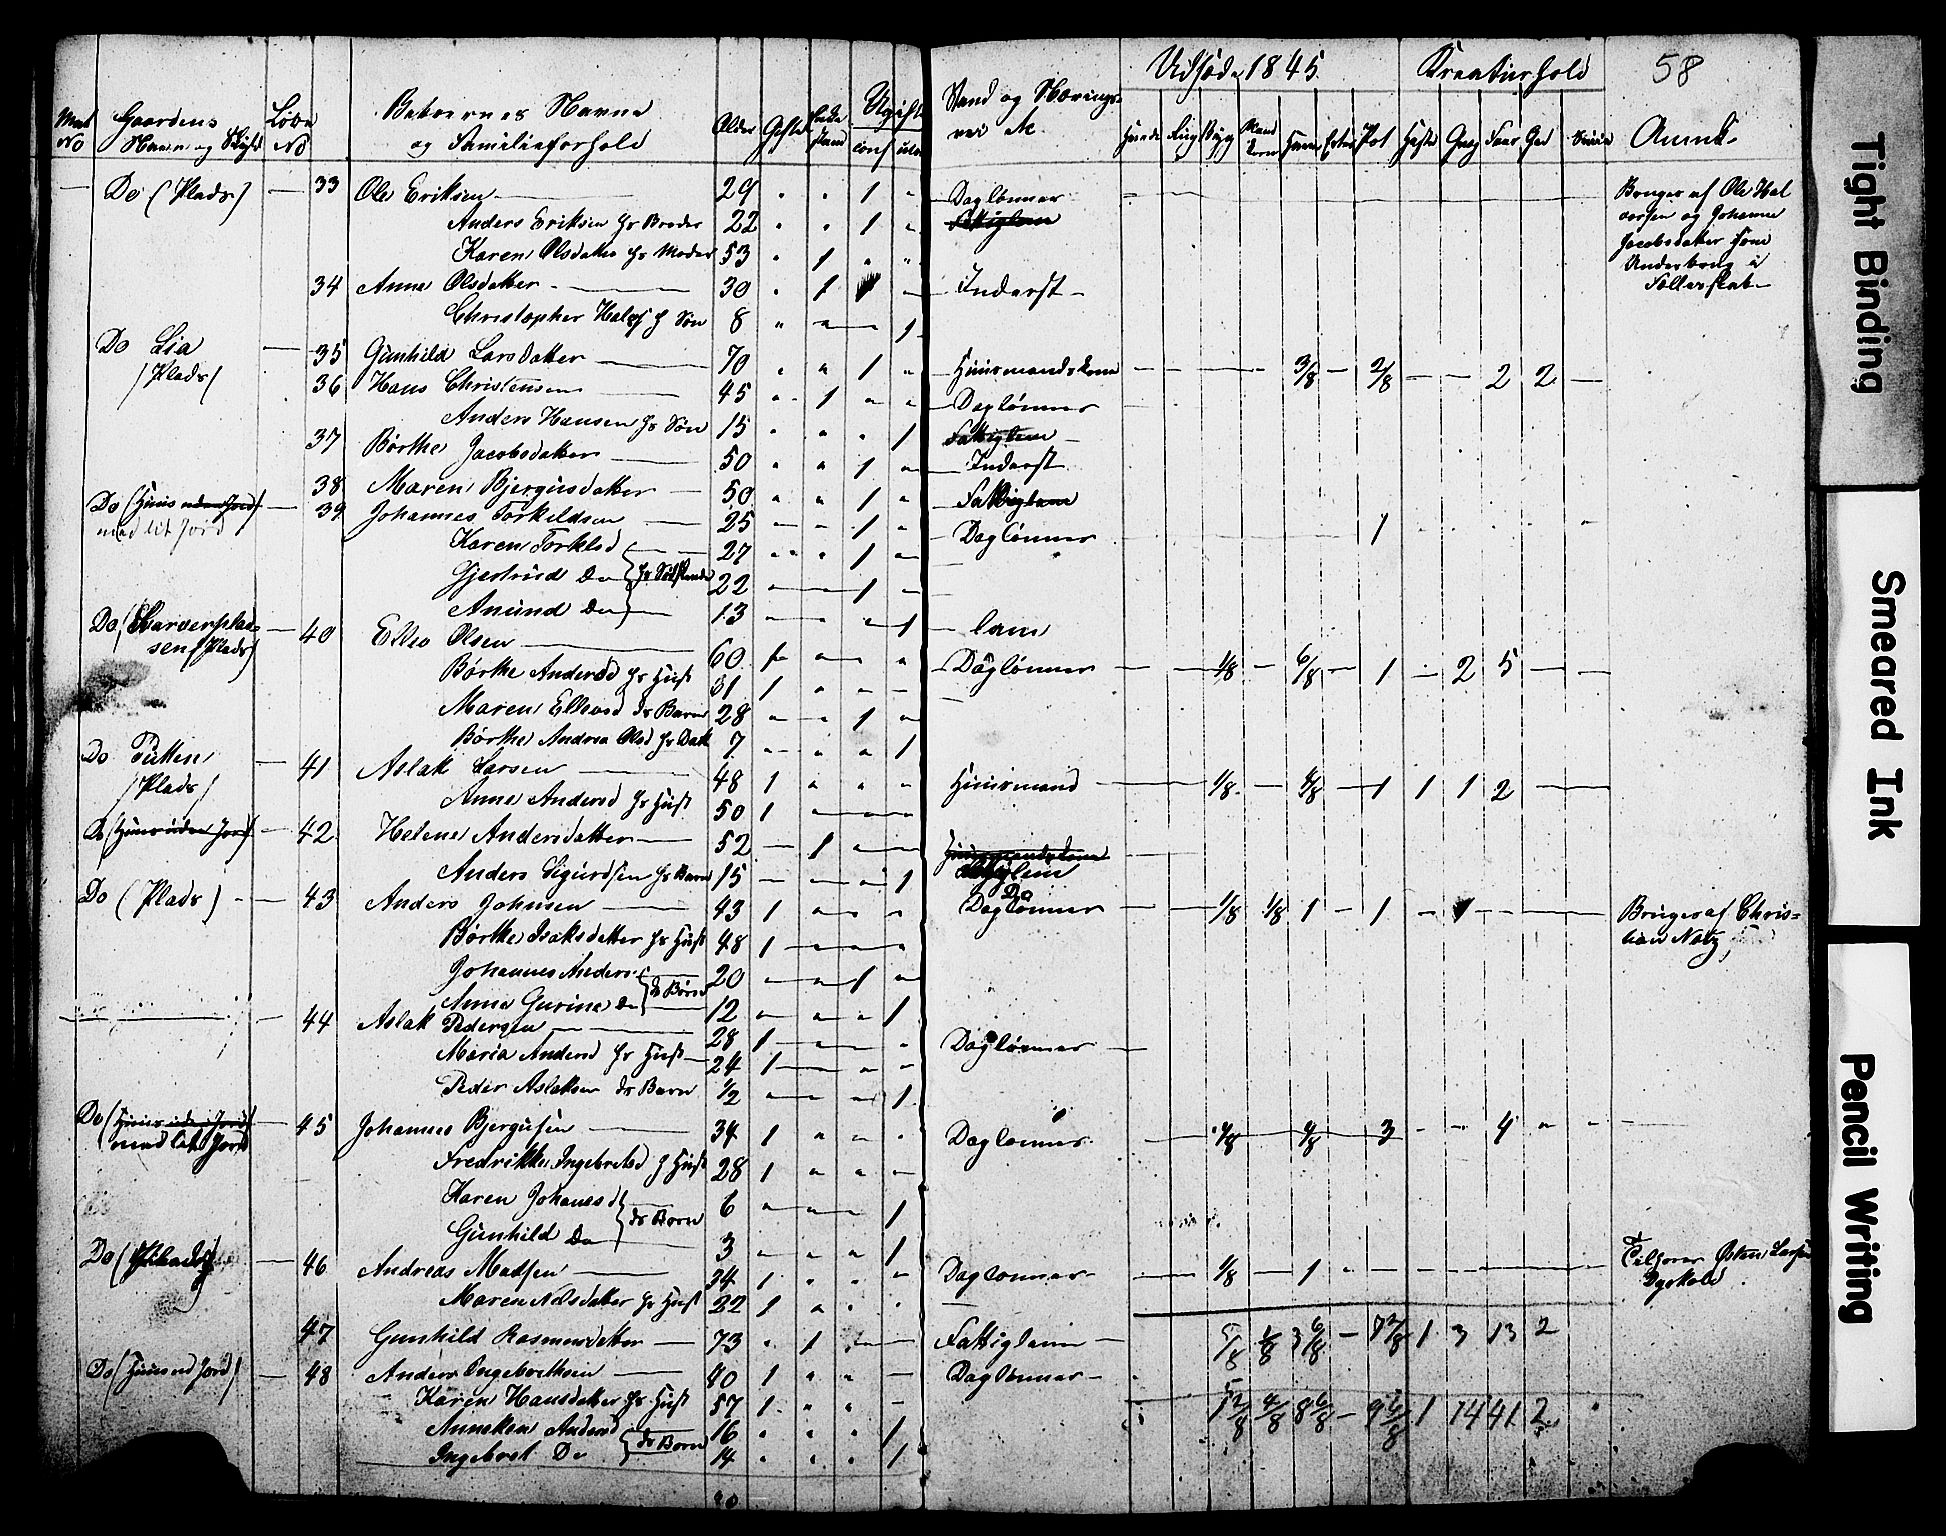 58
Udsæd 1845. Kreaturhold
Mat No Gaardens Navn og Løbe No Beboernes Navne og Familieforhold Alder Gifte Enke Stand Ugifte conf Stand og Nærings- vei Hvede Rug Byg Bland korn Havre Erter Pot Heste Qvæg Faar Ged Sviin Anmk.
Do (Plads) 33 Ole Eriksen 29 1 Daglønner
Bruger af Ole Hal
vorsen og Johanne
Jacobsdatter som
Underbrug i
Fællesskab
Anders Eriksen hs Broder 22 1 Fattiglem
Karen Olsdatter hs Moder 53 1
34 Anne Olsdatter 30 1 Inderst
Christopher Halvs h Søn 8 1
Do Lia 35 Gunhild Larsdatter 70 1 Huusmandskone 3/8 2/8 2 2
/Plads/ 36 Hans Christensen 45 1 Daglønner
Anders Hansen hs Søn 15 1 Fattiglem
37 Børthe Jacobsdatter 50 1 Inderst
38 Maren Bjergusdatter 50 1 Fattiglem
Do (Huus uden Jord) 39 Johannes Torkildsen 25 1 Daglønner 1
med lit Jord
Karen Torklsd 27 1
Gjertrud Do hs Sødskende 22 1
Amund Do 13 1 lam
Do (Garverplad- 40 Ellev Olsen 60 1 Daglønner 1/8 6/8 1 2 5
sen (Plads)
Børthe Andersd hs Hust 61 1
Maren Ellevsd ds Barn 28 1
Børthe Andrea Olsd hs Datt 7 1
Do Putten 41 Aslak Larsen 48 1 Huusmand 1/8 4/8 1 1 1 2
/Plads/
Anne Andersd hs Hust 50 1
Do (Huus uden Jord) 42 Helene Andersdatter 52 1 Huusmandskone
Fattiglem
Anders Sigurdsen hs Barn 15 1 Do
Do (Plads) 43 Anders Johnsen 43 1 Daglønner 1/8 1/8 1 1 1
Bruger af Chris=
tian Natz
Børthe Isaksdatter hs Hust 48 1
Johannes Anders 20 1
Anne Gurine Do ds Børn 12 1
44 Aslak Pedersen 28 1 Daglønner
Maria Andersd hs Hust 24 1
Peder Aslaksen ds Barn 1/2 1
Do (Huus uden Jord) 45 Johannes Bjergusen 34 1 Daglønner 4/8 3 4
med lit Jord
Fredrikke Ingebretsd h Hust 28 1
Karen Johanesd 6 1
Gunhild Do ds Børn 3 1
Do (Plads) 46 Andreas Madsen 34 1 Daglønner 1/8 1
Tilhører Østen Larsen
Dyrkold
Maren Nilsdatter hs Hust 22 1
47 Gunhild Rasmusdatter 73 1 Fattiglem
5/8 1/8 3 6/8 7 2/8 1 3 13 2
Do (Huus ud Jord) 48 Anders Ingebrethsen 40 1 Daglønner
Karen Hansdatter hs Hust 57 1 1 2/8 4/8 8 6/8 9 6/8 1 14 41 2
Anneken Andersd 16 1
Ingebret Do ds Børn 14 1